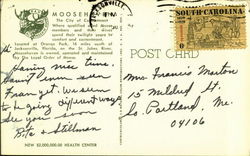 MOOSEHAVEN
The City of Contentment
Where qualified Loyal Order of Moose
members and their wives
spend their twilight years in
comfort and contentment.
Located at Orange Park, 14 miles south of
Jacksonville, Florida, on the St. Johns River.
Moosehaven is owned, operated and maintained
by the Loyal Order of Moose.
SOUTH CAROLINA
POST CARD
Hi
Having nice time.
Haven't even seen
Fran yet. We seem
to be going different ways
See you soon
Rita & Stillman
Mrs. Francis Marton
15 Mildred St.
So. Portland, Me.
04106
NEW $2,000,000.00 HEALTH CENTER